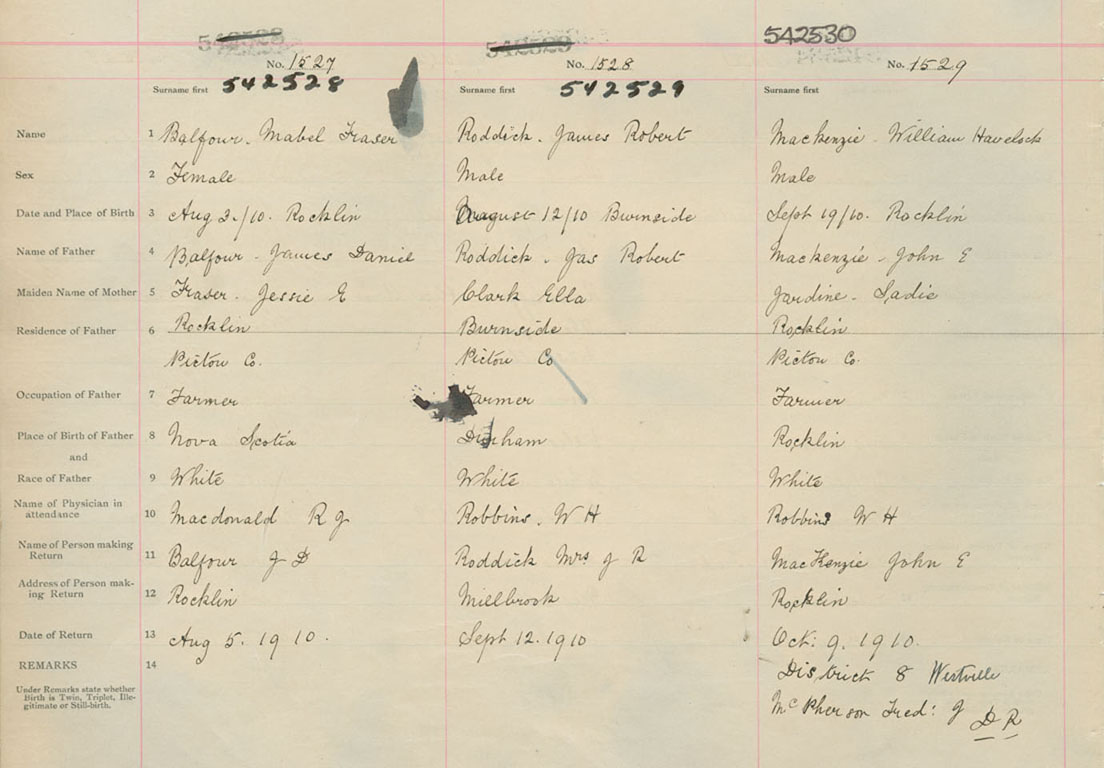 542530
No. 1527 No. 1528 No. 1529
Surname first 542528 Surname first 542529 Surname first
Name 1 Balfour. Mabel Fraser Roddick. James Robert Mackenzie. William Havelock
Sex 2 Female Male Male
Date and Place of Birth 3 Aug 3./10. Rocklin August 12/10 Burnside Sept 19/10. Rocklin
Name of Father 4 Balfour - James Daniel Roddick. Jas Robert Mackenzie - John E
Maiden Name of Mother 5 Fraser. Jessie E Clark Ella Jardine - Sadie
Residence of Father 6 Rocklin Burnside Rocklin
Pictou Co. Pictou Co Pictou Co.
Occupation of Father 7 Farmer Farmer Farmer
Place of Birth of Father 8 Nova Scotia Durham Rocklin
and
Race of Father 9 White White White
Name of Physician in
attendance 10 Macdonald R J Robbins. W H Robbins W H
Name of Person making
Return 11 Balfour J D Roddick Mrs J R MacKenzie John E
Address of Person mak-
ing Return 12 Rocklin Millbrook Rocklin
Date of Return 13 Aug 5. 1910. Sept 12. 1910 Oct: 9. 1910.
REMARKS 14 District 8 Westville
Under Remarks state whether
Birth is Twin, Triplet, Ille-
gitimate or Still-birth. McPherson Fred: J D R